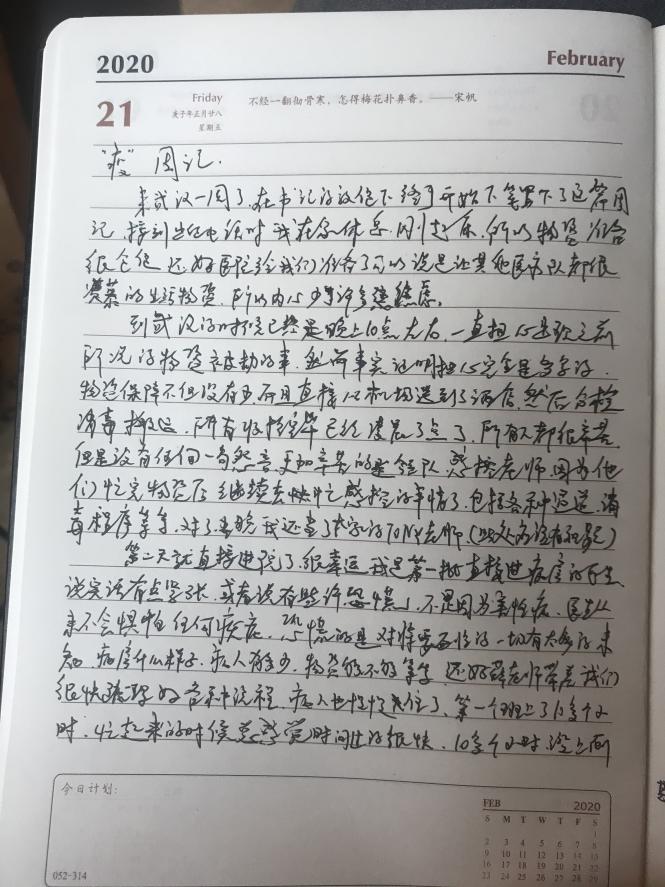 2020
February
21
Friday
庚子年正月廿八
星期五
不经一翻彻骨寒，怎得梅花扑鼻香。——宋帆
"疫" 周记.
来武汉一周了.在书记的议促下终于开始下笔写下了这篇周
记.接到出征电话时我在家休息.刚起床.所以物资准备
很仓促.还好医院给我们准备了可以说是让其他医疗队都很
羡慕的生活物资.所以内心少了许多焦虑.
到武汉的时候已经是晚上10点左右.一直担心
所说的物资被劫的事.然而事实证明担心完全是多余的.
物资保障不但没有少而且直接从机场送到了酒店.然后分检
消毒搬运.所有收拾完毕已经凌晨了点了.所有人都很辛苦
但是没有任何一句怨言.更加辛苦的是领队.感控老师.因为他
们忙完物资后继续去忙感控的事情了.包括各种通道.消
毒程序等等.对了当晚我还当了
第二天就直接进院了.很幸运我是第一批直接进病房的医生
说实话有点紧张.或者说有些许恐慌.不是因为害怕病.医生从
来不会惧怕任何疾病.恐慌的是对将要面临的一切有太多的未
知.病房什么样子.病人有多少.物资够不够等等.还好薛老师带着我们
很快梳理好了各种流程.病人也慢慢是住了.第一个班上了10多个小
时.忙起来的时候总感觉时间过的很快.10多个小时.
今日计划:
FEB 2020
S M T W T F S
1
2 3 4 5 6 7 8
9 10 11 12 13 14 15
16 17 18 19 20 21 22
23 24 25 26 27 28 29
052-314